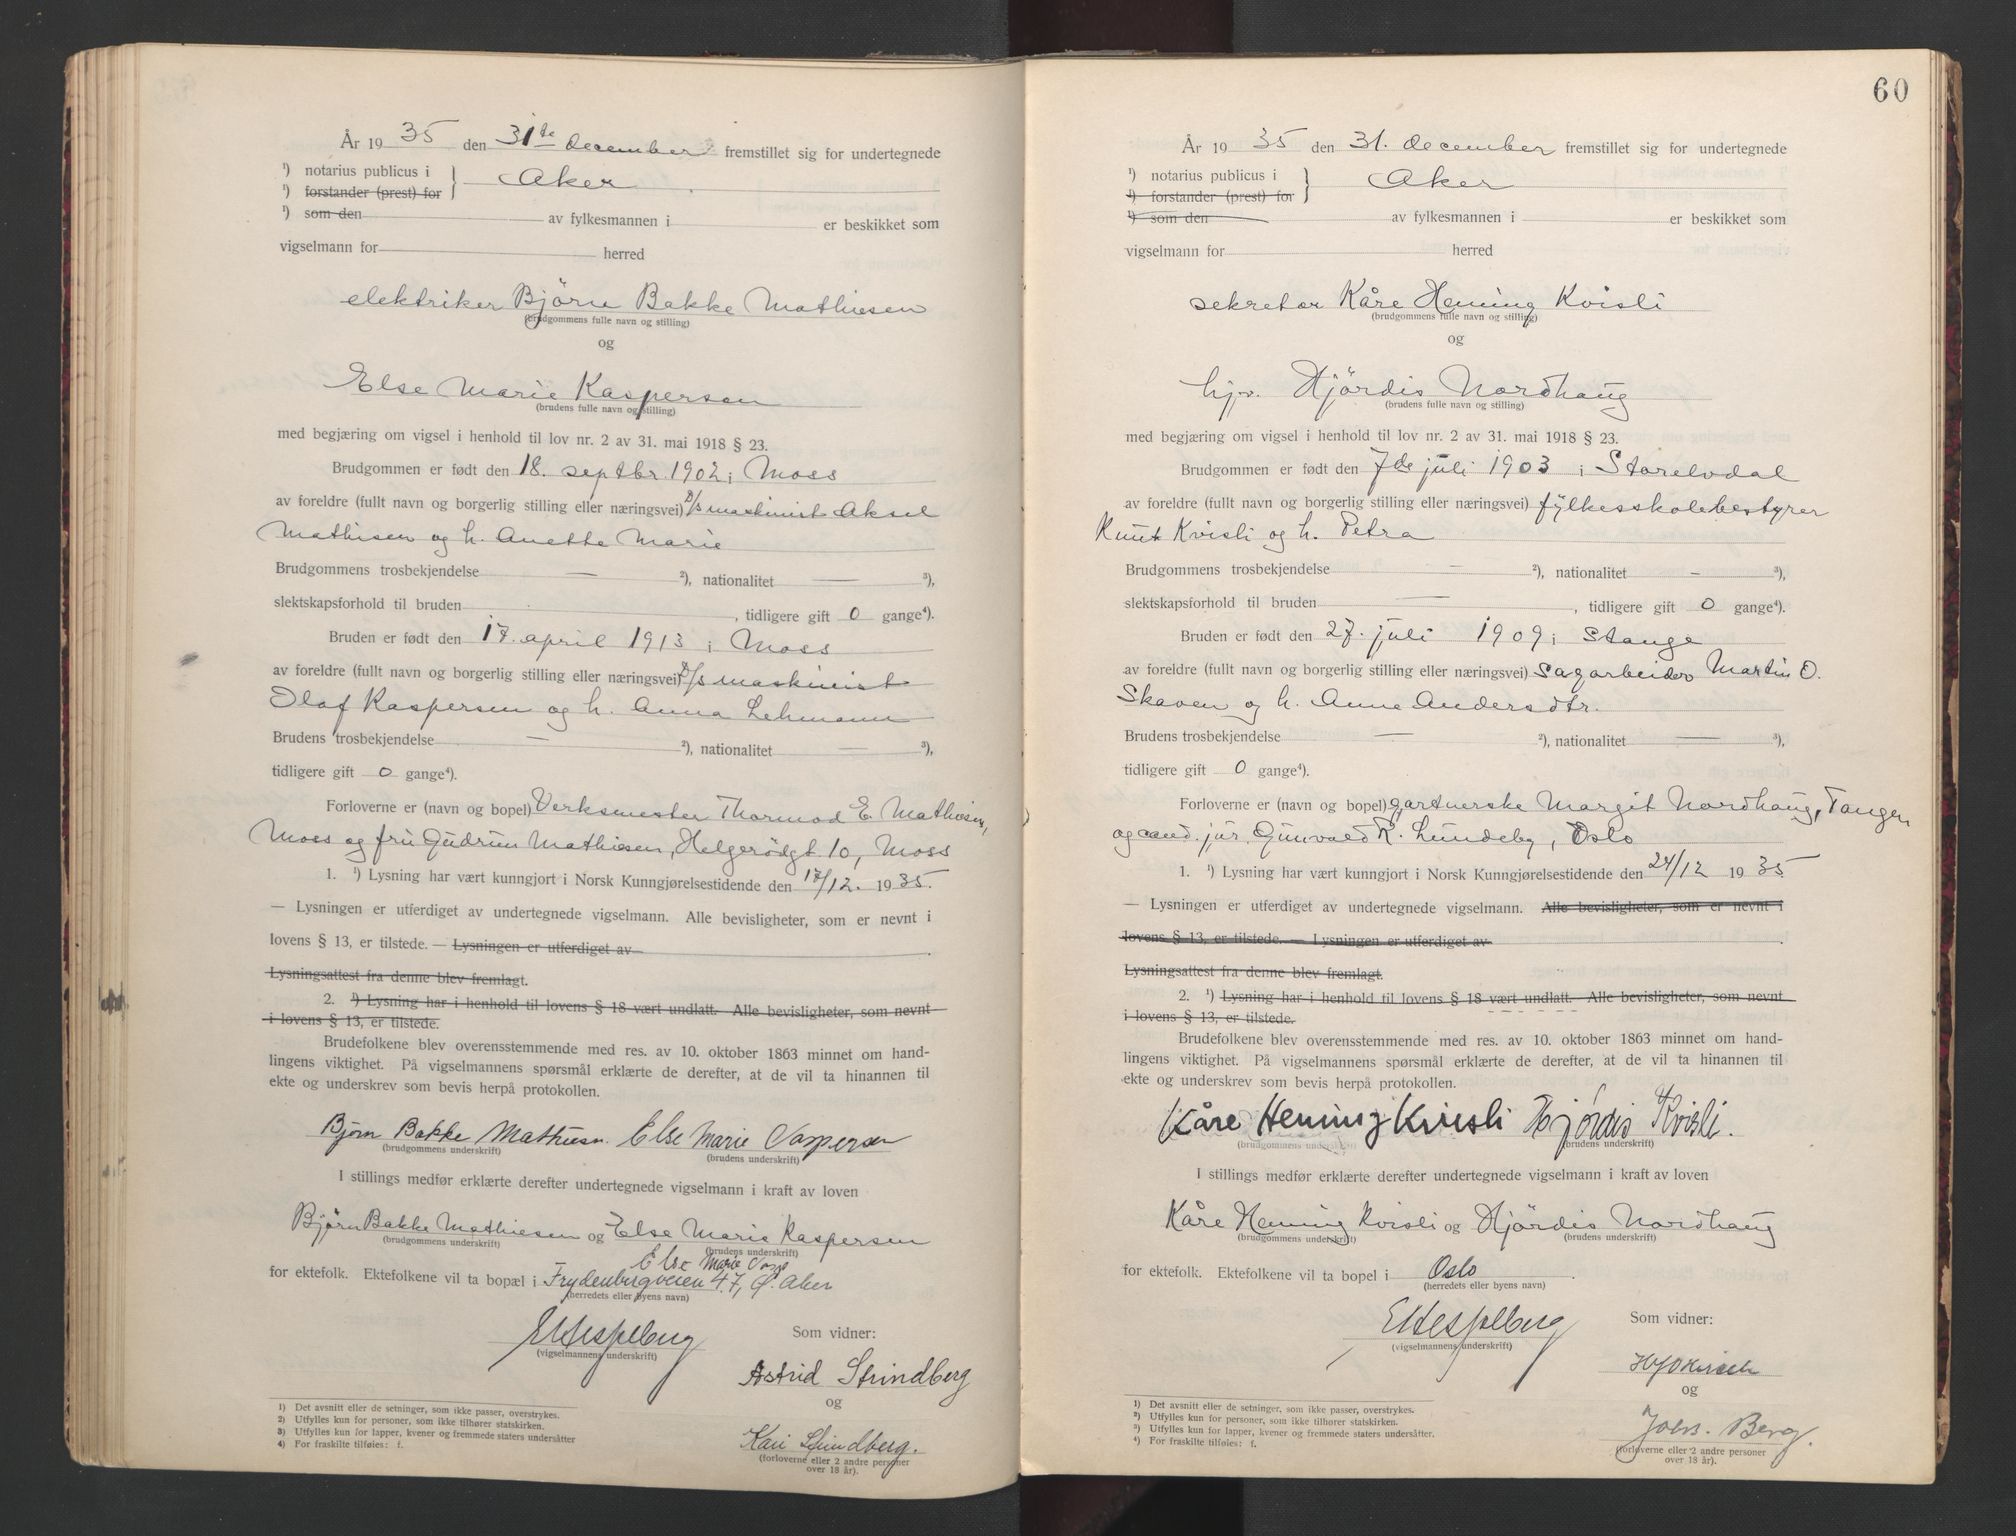 År 19 35 den 31te december fremstillet sig for undertegnede
¹) notarius publicus i } Aker
¹) forstander (prest) for
¹) som den av fylkesmannen i er beskikket som
vigselmann for herred
elektriker Björn Bakke Mathiesen
(brudgommens fulle navn og stilling)
og
Else Marie Kaspersen
(brudens fulle navn og stilling)
med begjæring om vigsel i henhold til lov nr. 2 av 31. mai 1918 § 23.
Brudgommen er født den 18. septbr. 1902 i Moss
av foreldre (fullt navn og borgerlig stilling eller næringsvei) D/s maskinist Aksel
Mathisen og h. Anette Marie
Brudgommens trosbekjendelse — ²), nationalitet — ³),
slektskapsforhold til bruden , tidligere gift 0 gange⁴).
Bruden er født den 17. april 1913 i Moss
av foreldre (fullt navn og borgerlig stilling eller næringsvei) D/s maskinist
Olaf Kaspersen og h. Anna Lehmann
Brudens trosbekjendelse — ²), nationalitet — ³),
tidligere gift 0 gange⁴).
Forloverne er (navn og bopel) Verksmester Thormod E. Mathiesen,
Moss og fru Gudrun Mathiesen, Helgerödgt. 10, Moss
1. ¹) Lysning har vært kunngjort i Norsk Kunngjørelsestidende den 17/12. 19 35.
— Lysningen er utferdiget av undertegnede vigselmann. Alle bevisligheter, som er nevnt i
lovens § 13, er tilstede. — Lysningen er utferdiget av
Lysningsattest fra denne blev fremlagt.
2. ¹) Lysning har i henhold til lovens § 18 vært undlatt. Alle bevisligheter, som nevnt
i lovens § 13, er tilstede.
Brudefolkene blev overensstemmende med res. av 10. oktober 1863 minnet om hand-
lingens viktighet. På vigselmannens spørsmål erklærte de derefter, at de vil ta hinannen til
ekte og underskrev som bevis herpå protokollen.
Bjørn Bakke Mathiesen. Else Marie Caspersen
(brudgommens underskrift) (brudens underskrift)
I stillings medfør erklærte derefter undertegnede vigselmann i kraft av loven
Björn Bakke Mathiesen og Else Marie Kaspersen
(brudgommens underskrift) (brudens underskrift)
Else Marie Casp
for ektefolk. Ektefolkene vil ta bopæl i Frydenbergveien 47, Ø. Aker
(herredets eller byens navn)
Som vidner:
(vigselmannens underskrift)
Astrid Strindberg
og
Kari Strindberg.
(forloverne eller 2 andre personer
over 18 år).
1) Det avsnitt eller de setninger, som ikke passer, overstrykes.
2) Utfylles kun for personer, som ikke tilhører statskirken.
3) Utfylles kun for lapper, kvener og fremmede staters undersåtter
4) For fraskilte tilføies: f.
60
År 19 35 den 31. december fremstillet sig for undertegnede
¹) notarius publicus i } Aker
¹) forstander (prest) for
¹) som den av fylkesmannen i er beskikket som
vigselmann for herred
sekretær Kåre Heming Kvisli
(brudgommens fulle navn og stilling)
og
hjv. Hjördis Nordhaug
(brudens fulle navn og stilling)
med begjæring om vigsel i henhold til lov nr. 2 av 31. mai 1918 § 23.
Brudgommen er født den 7de juli 1903 i Storelvdal
av foreldre (fullt navn og borgerlig stilling eller næringsvei) fylkesskolebestyrer
Knut Kvisli og h. Petra
Brudgommens trosbekjendelse — ²), nationalitet — ³),
slektskapsforhold til bruden — , tidligere gift 0 gange⁴).
Bruden er født den 27. juli 1909 i Stange
av foreldre (fullt navn og borgerlig stilling eller næringsvei) Sagarbeider Martin O.
Skaven og h. Anne Andersdtr.
Brudens trosbekjendelse — ²), nationalitet — ³),
tidligere gift 0 gange⁴).
Forloverne er (navn og bopel) gartnerske Margit Nordhaug, Tangen
og cand. jur. Gunvald R. Lundeby, Oslo
1. ¹) Lysning har vært kunngjort i Norsk Kunngjørelsestidende den 24/12 19 35
— Lysningen er utferdiget av undertegnede vigselmann. Alle bevisligheter, som er nevnt i
lovens § 13, er tilstede. — Lysningen er utferdiget av
Lysningsattest fra denne blev fremlagt.
2. ¹) Lysning har i henhold til lovens § 18 vært undlatt. Alle bevisligheter, som nevnt
i lovens § 13, er tilstede.
Brudefolkene blev overensstemmende med res. av 10. oktober 1863 minnet om hand-
lingens viktighet. På vigselmannens spørsmål erklærte de derefter, at de vil ta hinannen til
ekte og underskrev som bevis herpå protokollen.
Kåre Heming Kvisli Hjördis Kvisli.
(brudgommens underskrift) (brudens underskrift)
I stillings medfør erklærte derefter undertegnede vigselmann i kraft av loven
Kåre Heming Kvisli og Hjördis Nordhaug
(brudgommens underskrift) (brudens underskrift)
for ektefolk. Ektefolkene vil ta bopel i Oslo
(herredets eller byens navn)
Som vidner:
(vigselmannens underskrift)
og
Johs. Berg.
(forloverne eller 2 andre personer
over 18 år).
1) Det avsnitt eller de setninger, som ikke passer, overstrykes.
2) Utfylles kun for personer, som ikke tilhører statskirken.
3) Utfylles kun for lapper, kvener og fremmede staters undersåtter.
4) For fraskilte tilføies: f.